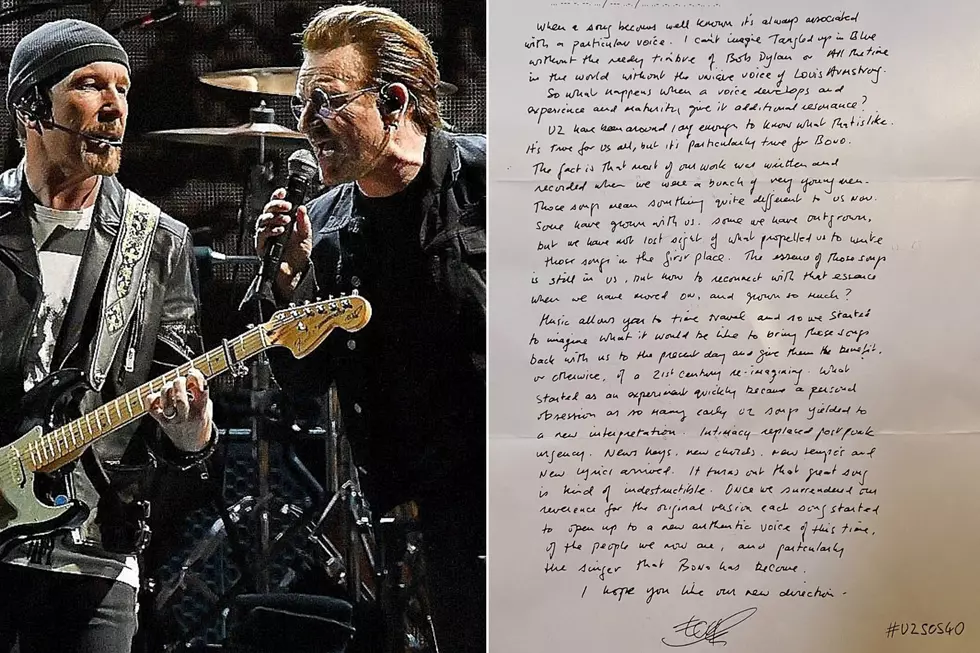 When a song becomes well known it's always associated
with a particular voice. I can't imagine Tangled up in Blue
without the reedy timbre of Bob Dylan or All the time
in the world without the unique voice of Louis Armstrong.
So what happens when a voice develops and
experience and maturity give it additional resonance?
U2 have been around long enough to know what that is like.
It's true for us all, but it's particularly true for Bono.
The fact is that most of our work was written and
recorded when we were a bunch of very young men.
Those songs mean something quite different to us now.
Some have grown with us. Some we have outgrown,
but we have not lost sight of what propelled us to write
those songs in the first place. The essence of those songs
is still in us, but how to reconnect with that essence
when we have moved on, and grown so much?
Music allows you to time travel and so we started
to imagine what it would be like to bring these songs
back with us to the present day and give them the benefit,
or otherwise, of a 21st century re-imagining. What
started as an experiment quickly became a personal
obsession as so many early U2 songs yielded to
a new interpretation. Intimacy replaced post punk
urgency. New keys, new chords, new tempos and
new lyrics arrived. It turns out that great song
is kind of indestructible. Once we surrendered our
reverence for the original version each song started
to open up to a new authentic voice of this time,
of the people we now are, and particularly
the singer that Bono has become.
I hope you like our new direction.
#U2SOS40